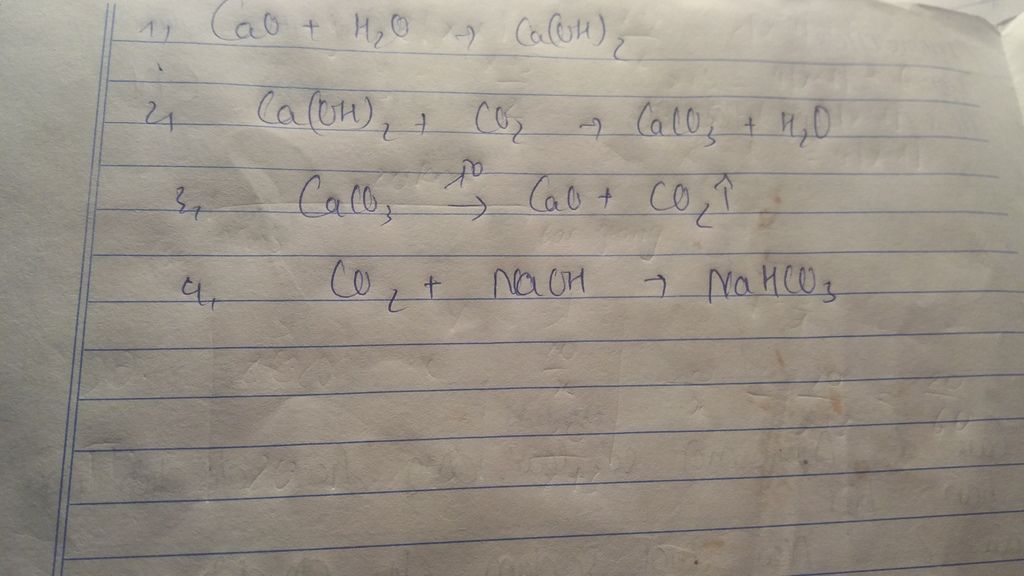 1, CaO + H₂O → Ca(OH)₂
2, Ca(OH)₂ + CO₂ → CaCO₃ + H₂O
3, CaCO₃ →(t⁰) CaO + CO₂↑
4, CO₂ + NaOH → NaHCO₃